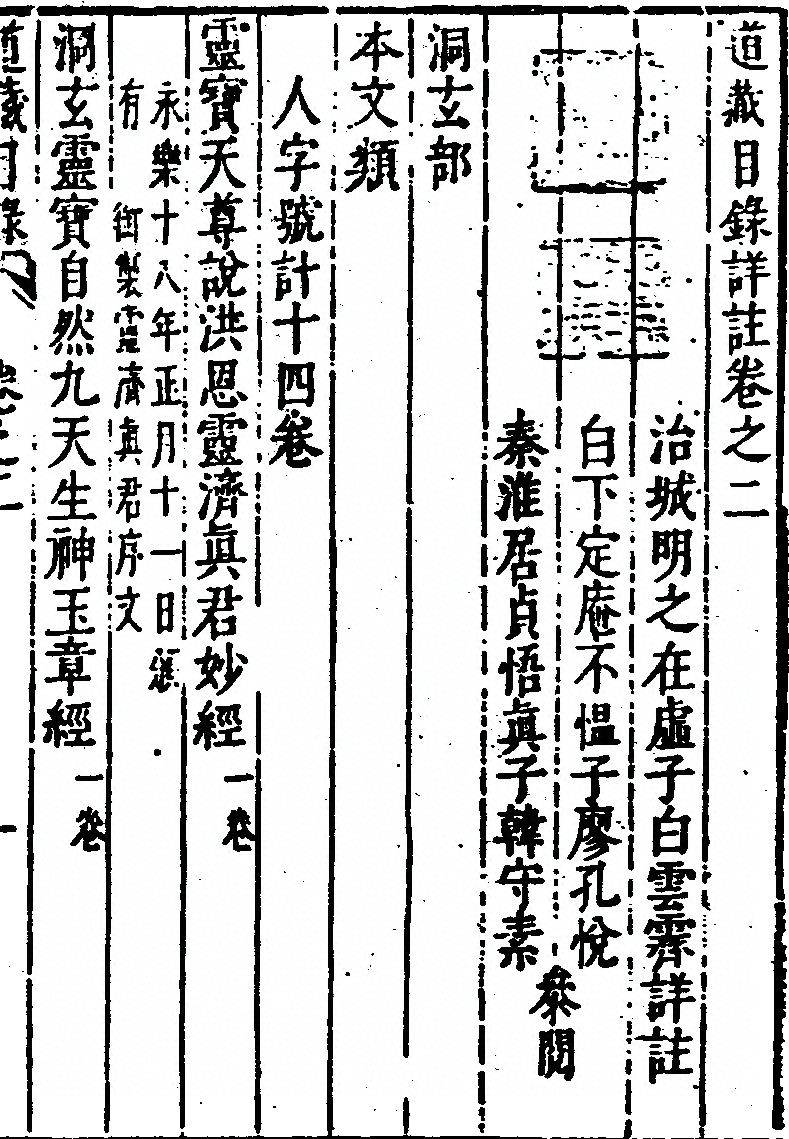 道藏目錄詳註卷之二
治城明之在虛子白雲霽詳註
白下定庵不慍子廖孔悅
秦淮居貞悟眞子韓守素
叅閱
洞玄部
本文類
人字號計十四卷
靈寶天尊說洪恩靈濟眞君妙經一卷
永樂十八年正月十一日
有 御製靈濟眞君序文
洞玄靈寶自然九天生神玉章經一卷
道藏目錄 卷之二 一